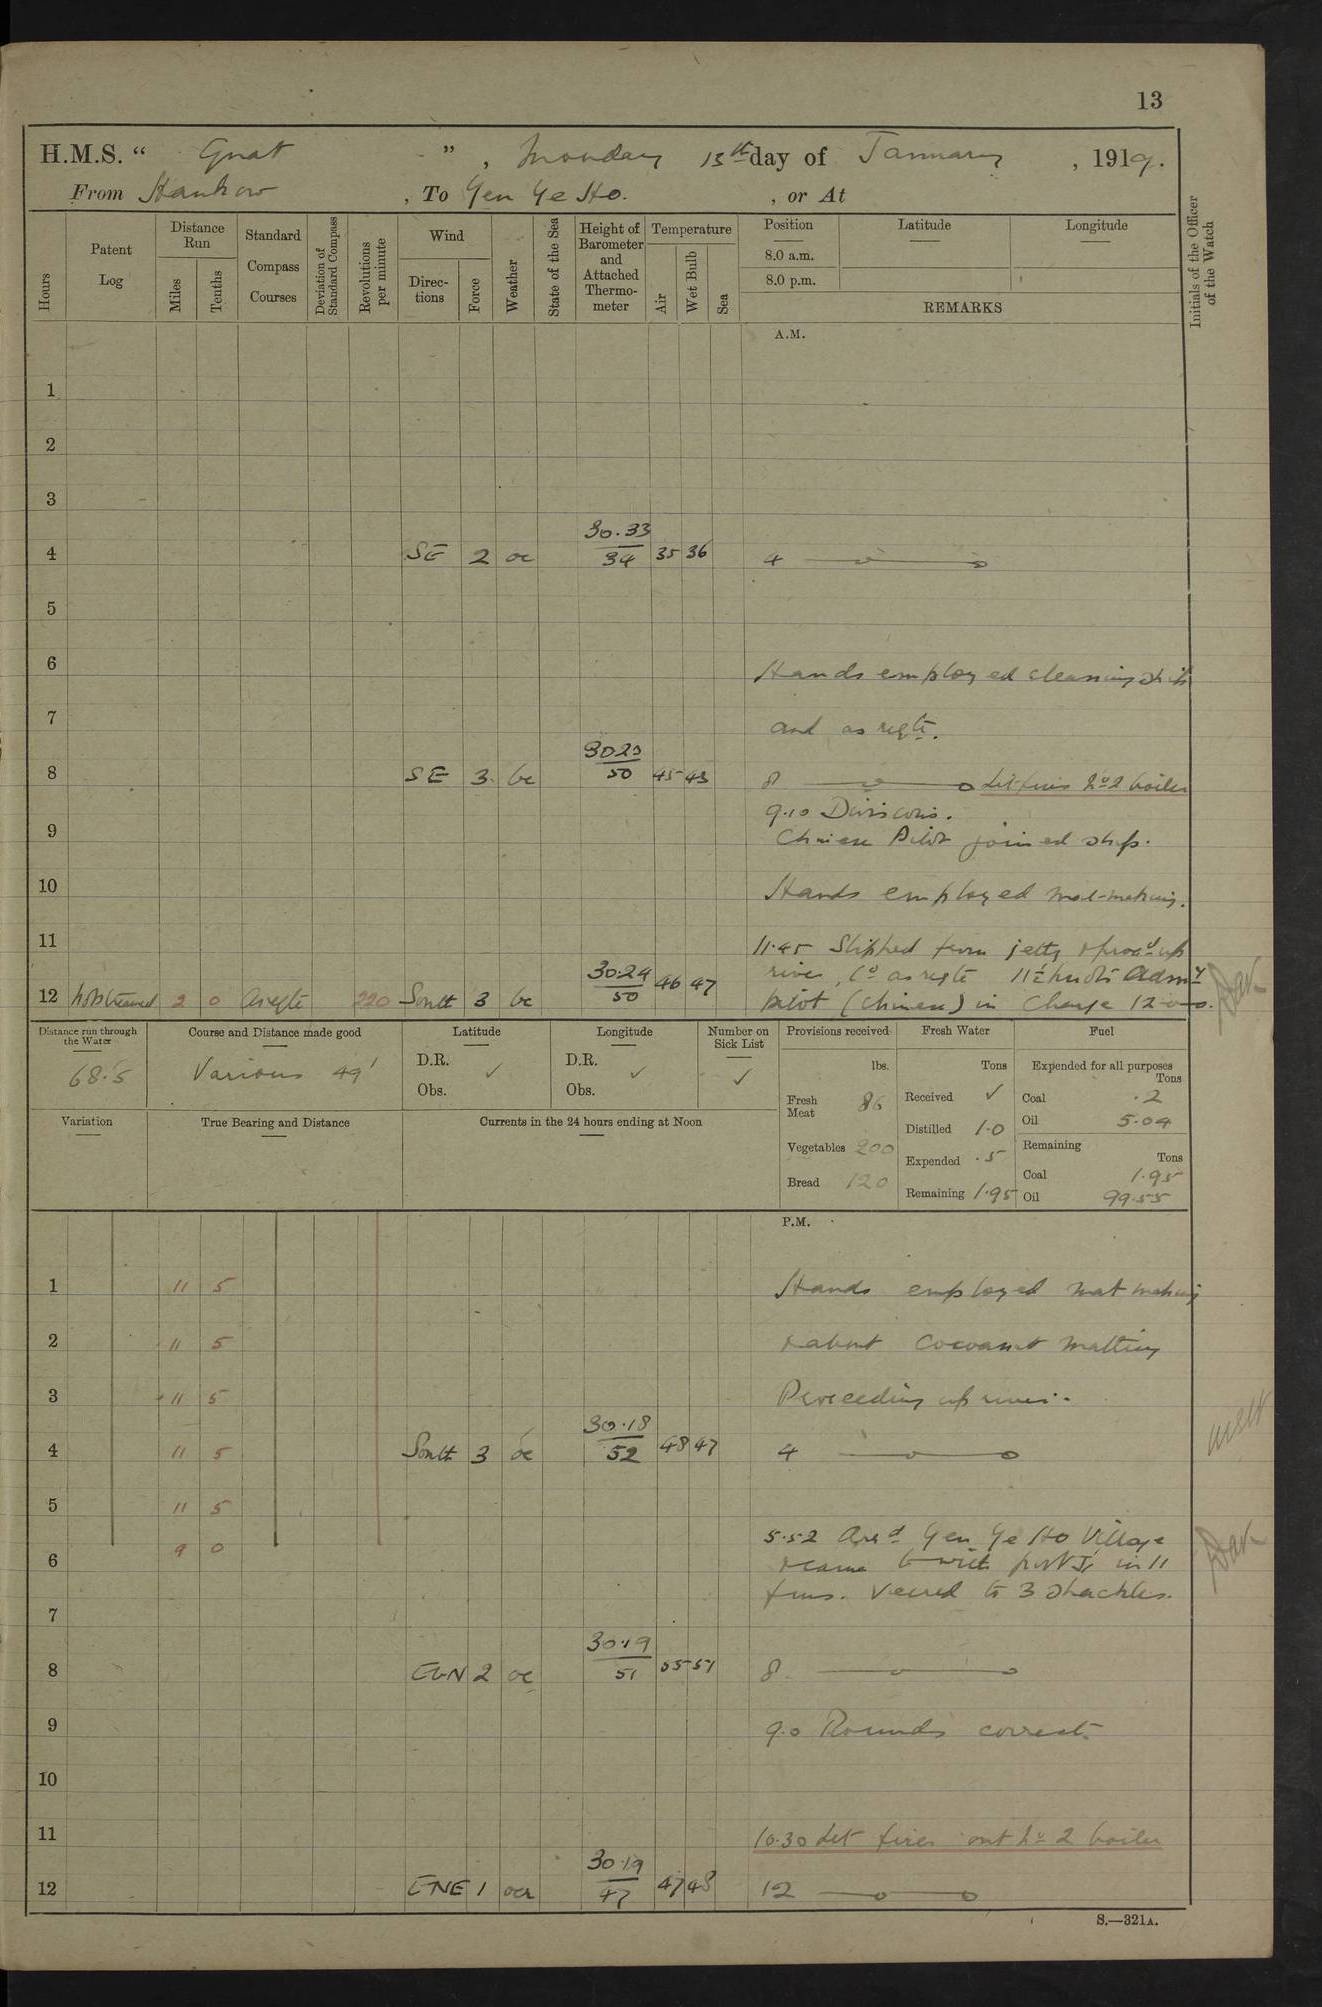 13
H.M.S. “ Gnat ” , Monday 13th day of January , 1919.
From Hankow , To Yen Ye Ho. , or At
Hours
Patent Log
Distance Run
Miles
Tenths
Standard Compass Courses
Deviation of Standard Compass
Revolutions per minute
Wind
Directions
Force
Weather
State of the Sea
Height of Barometer and Attached Thermometer
Temperature
Air
Wet Bulb
Sea
Position
8.0 a.m.
8.0 p.m.
Latitude
Longitude
REMARKS
Initials of the Officer of the Watch
A.M.
1
2
3
4 SE 2 oc 30.33 34 35 36 4
5
6 Hands employed cleaning ship
7 and as reqte.
8 SE 3 bc 50 45 43 8 Let fires No 2 boiler
9.10 Divisions.
9 Chinese Pilot joined ship.
10 Hands employed mat-making.
11 11.45 Slipped from jetty & procd up
river, Co as reqte 11½ knots Admy
12 Not streamed 2 0 As reqte 220 South 3 bc 30.24 50 46 47 pilot (Chinese) in Charge 12
Distance run through the Water
68.5
Course and Distance made good
Various 49'
Latitude
D.R. ✓
Obs.
Longitude
D.R. ✓
Obs.
Number on Sick List
✓
Provisions received
lbs.
Fresh Meat 86
Vegetables 200
Bread 120
Fresh Water
Tons
Received ✓
Distilled 1.0
Expended .5
Remaining 1.95
Fuel
Expended for all purposes
Tons
Coal .2
Oil 5.04
Remaining
Tons
Coal 1.95
Oil 99.55
Variation
True Bearing and Distance
Currents in the 24 hours ending at Noon
P.M.
1 11 5 Hands employed mat making
2 11 5 Cocoanut Matting
3 11 5 Proceeding up river.
4 11 5 South 3 oc 30.18 52 48 47 4
5 11 5
9 0 5.52 Arrd Yen Ye Ho Village
6 & came to with port in 11
fms. Veered to 3 shackles.
7
8 2 oc 30.19 51 55 51 8
9 9.0 Rounds correct.
10
11 10.30 Let fires out No 2 boiler
12 ENE 1 30.19 47 47 48 12
S.—321A.